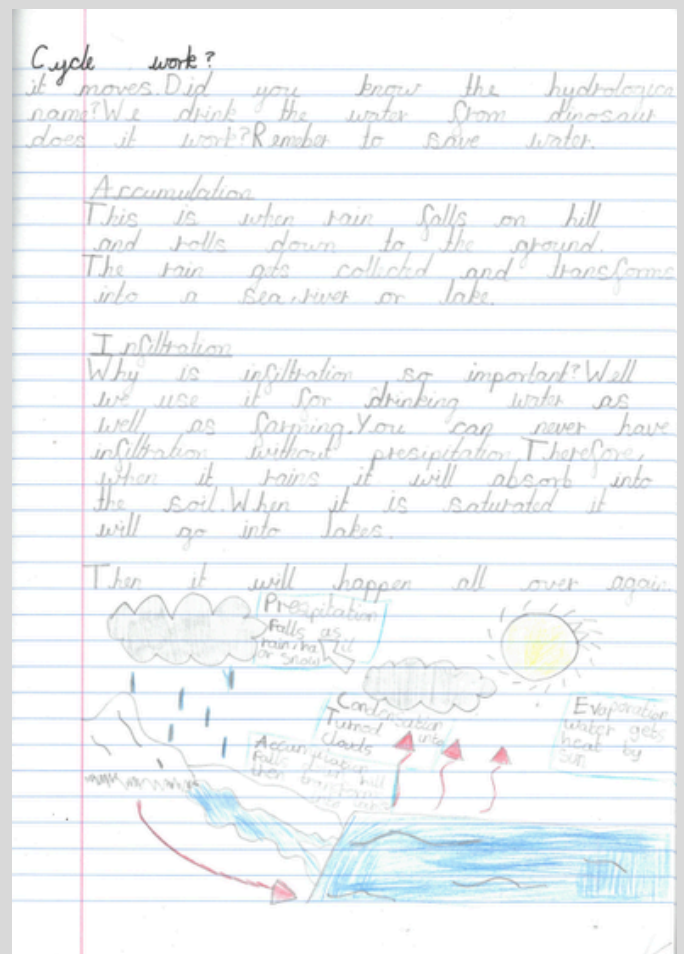 Cycle work?
it moves.Did you know the hydrologica
name?We drink the water from dinosaur
does it work?Rember to save water.
Accumulation
This is when rain falls on hill
and rolls down to the ground.
The rain gets collected and transforms
into a sea,river or lake.
Infiltration
Why is infiltration so important?Well
we use it for drinking water as
well as farming.You can never have
infiltration without presipitation.Therefore,
when it rains it will absorb into
the soil.When it is saturated it
will go into lakes.
Then it will happen all over again.
Presipitation
Falls as
rain,hail
or snow
Condensation
Turned into
clouds
Evaporation
water gets
heat by
sun
Accumulation
Falls down hill
then transforms
into lakes